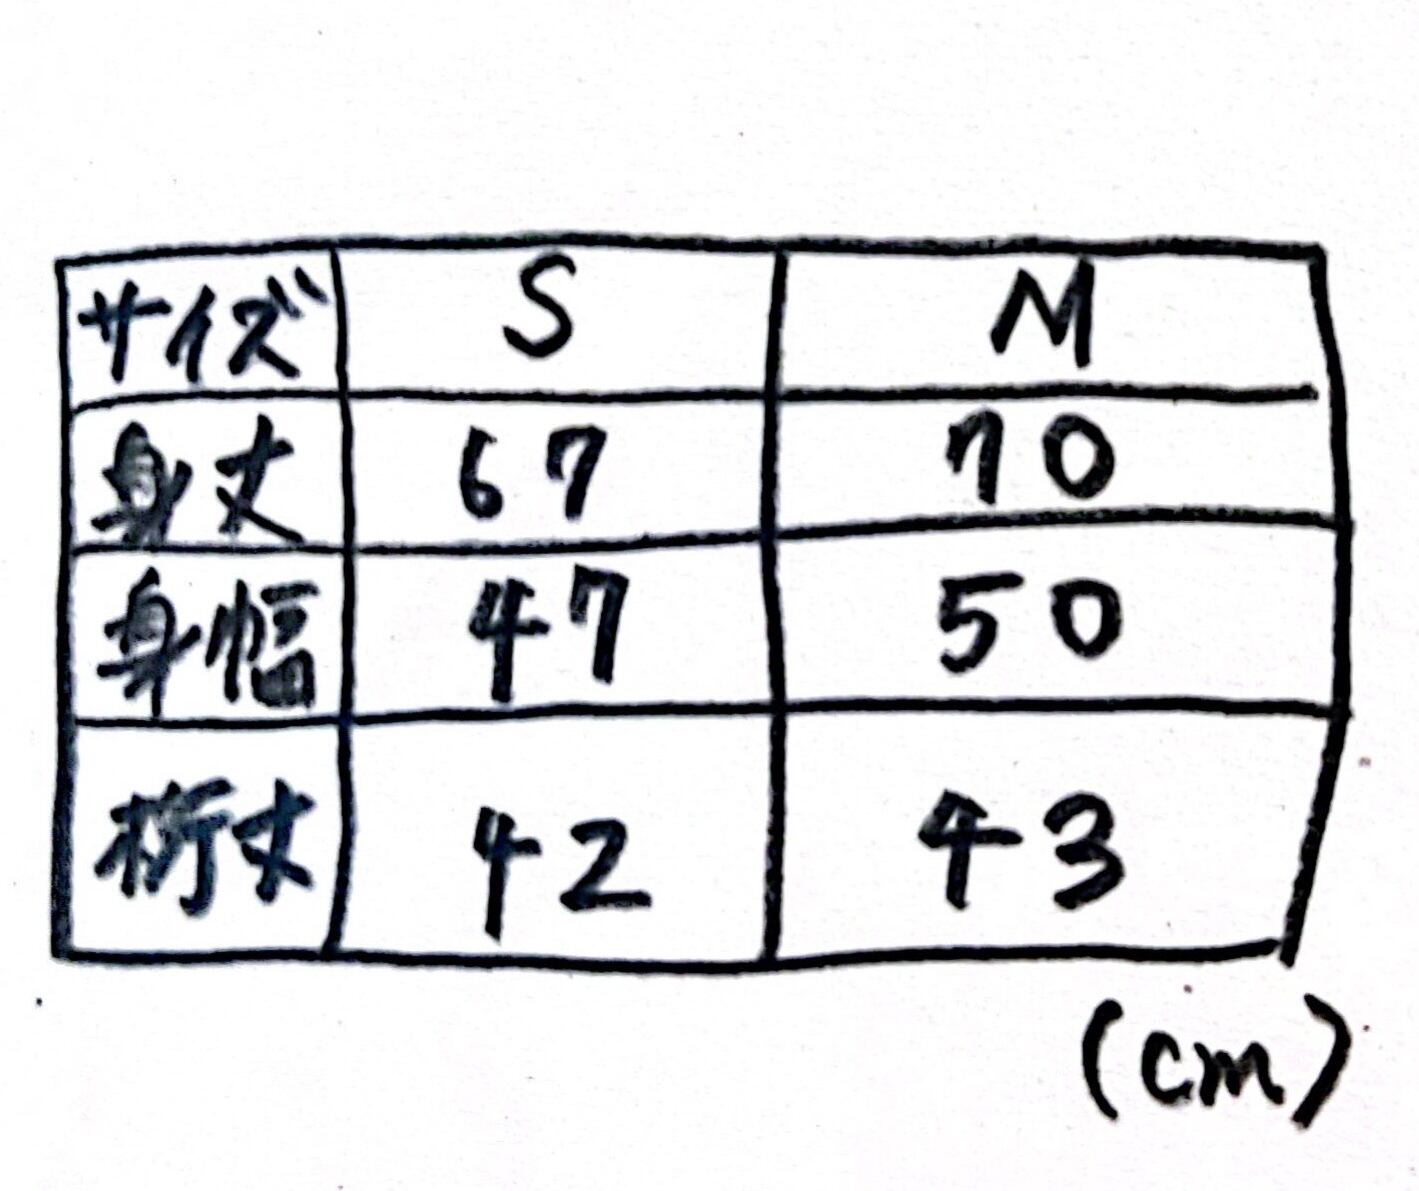 サイズ S M
身丈 67 70
身幅 47 50
裄丈 42 43
(cm)